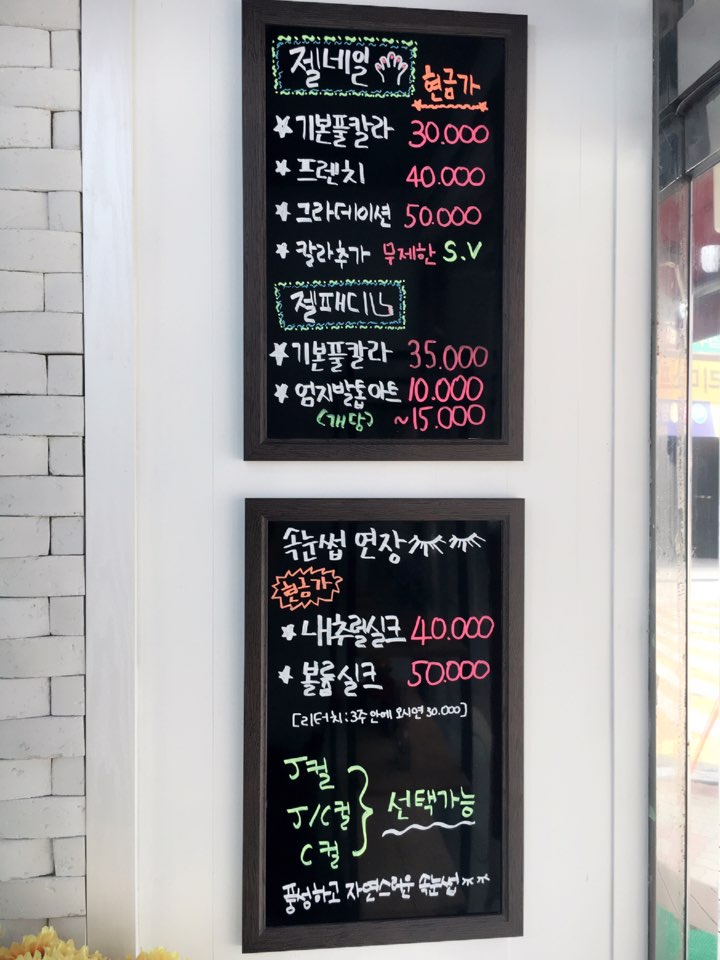 젤네일
현금가
기본풀칼라 30.000
프렌치 40.000
그라데이션 50.000
칼라추가 무제한 S.V
젤패디
기본풀칼라 35.000
엄지발톱아트 10.000
(개당) ~15.000
속눈썹 연장
현금가
내추럴실크 40.000
볼륨실크 50.000
[리터치:3주안에 오시면 30.000]
J컬
J/C컬
C컬
선택가능
풍성하고 자연스러운 속눈썹